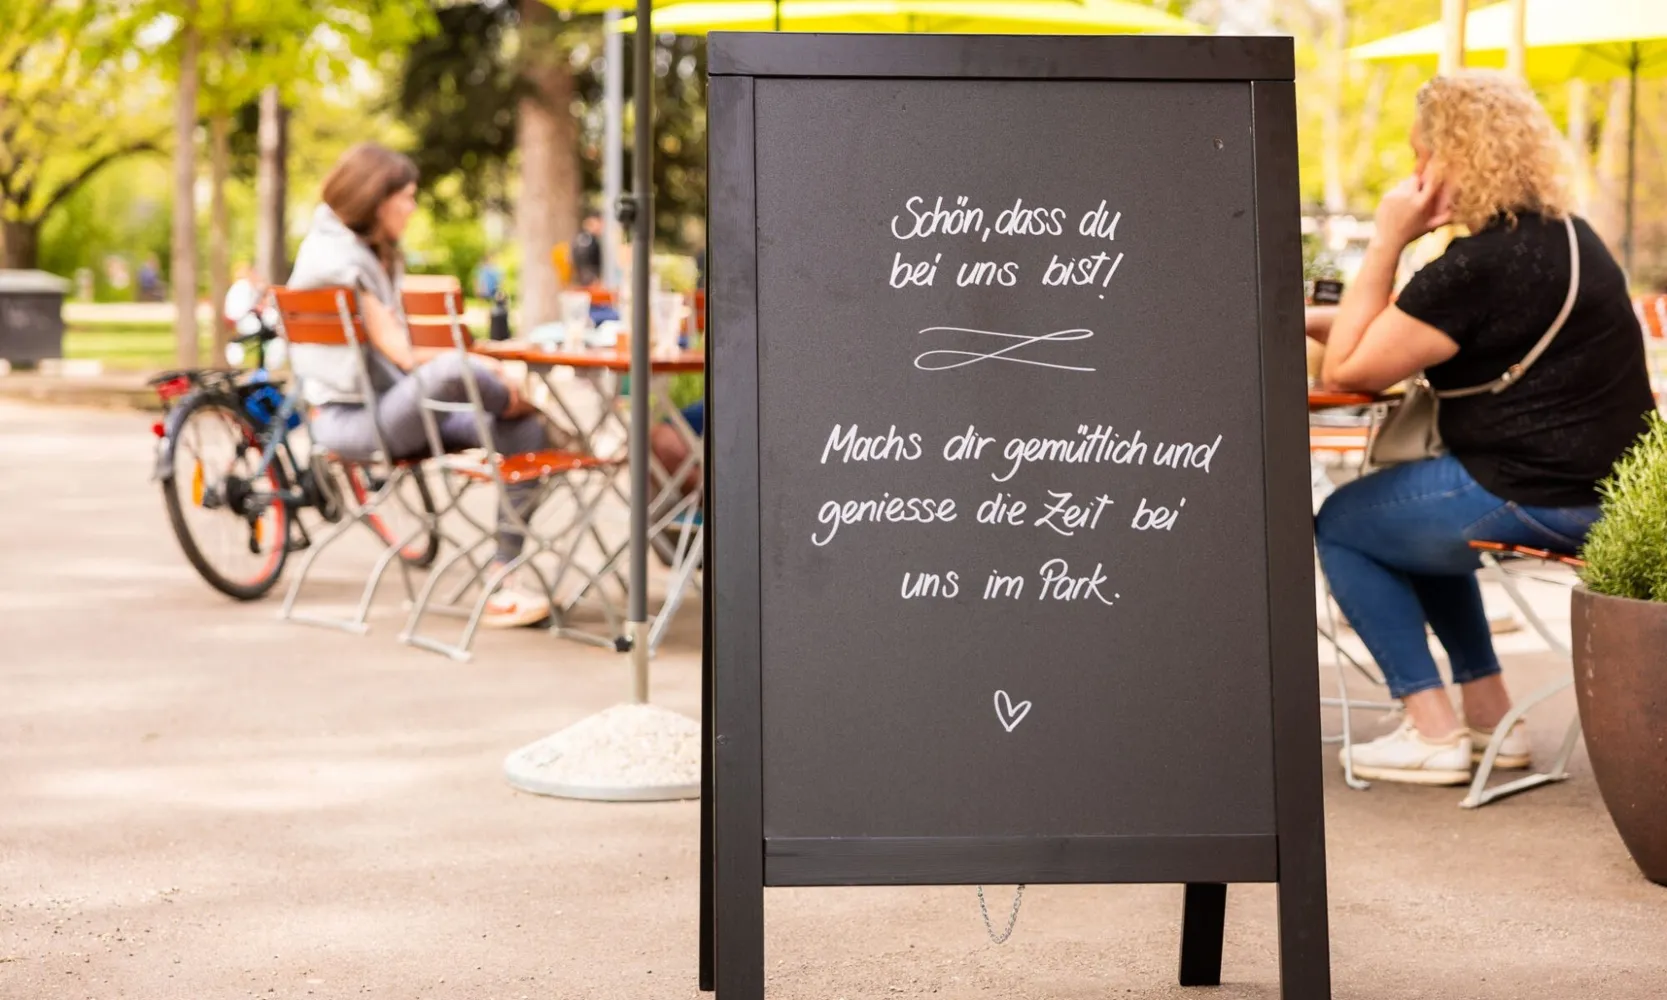 Schön, dass du
bei uns bist!
Machs dir gemütlich und
geniesse die Zeit bei
uns im Park.